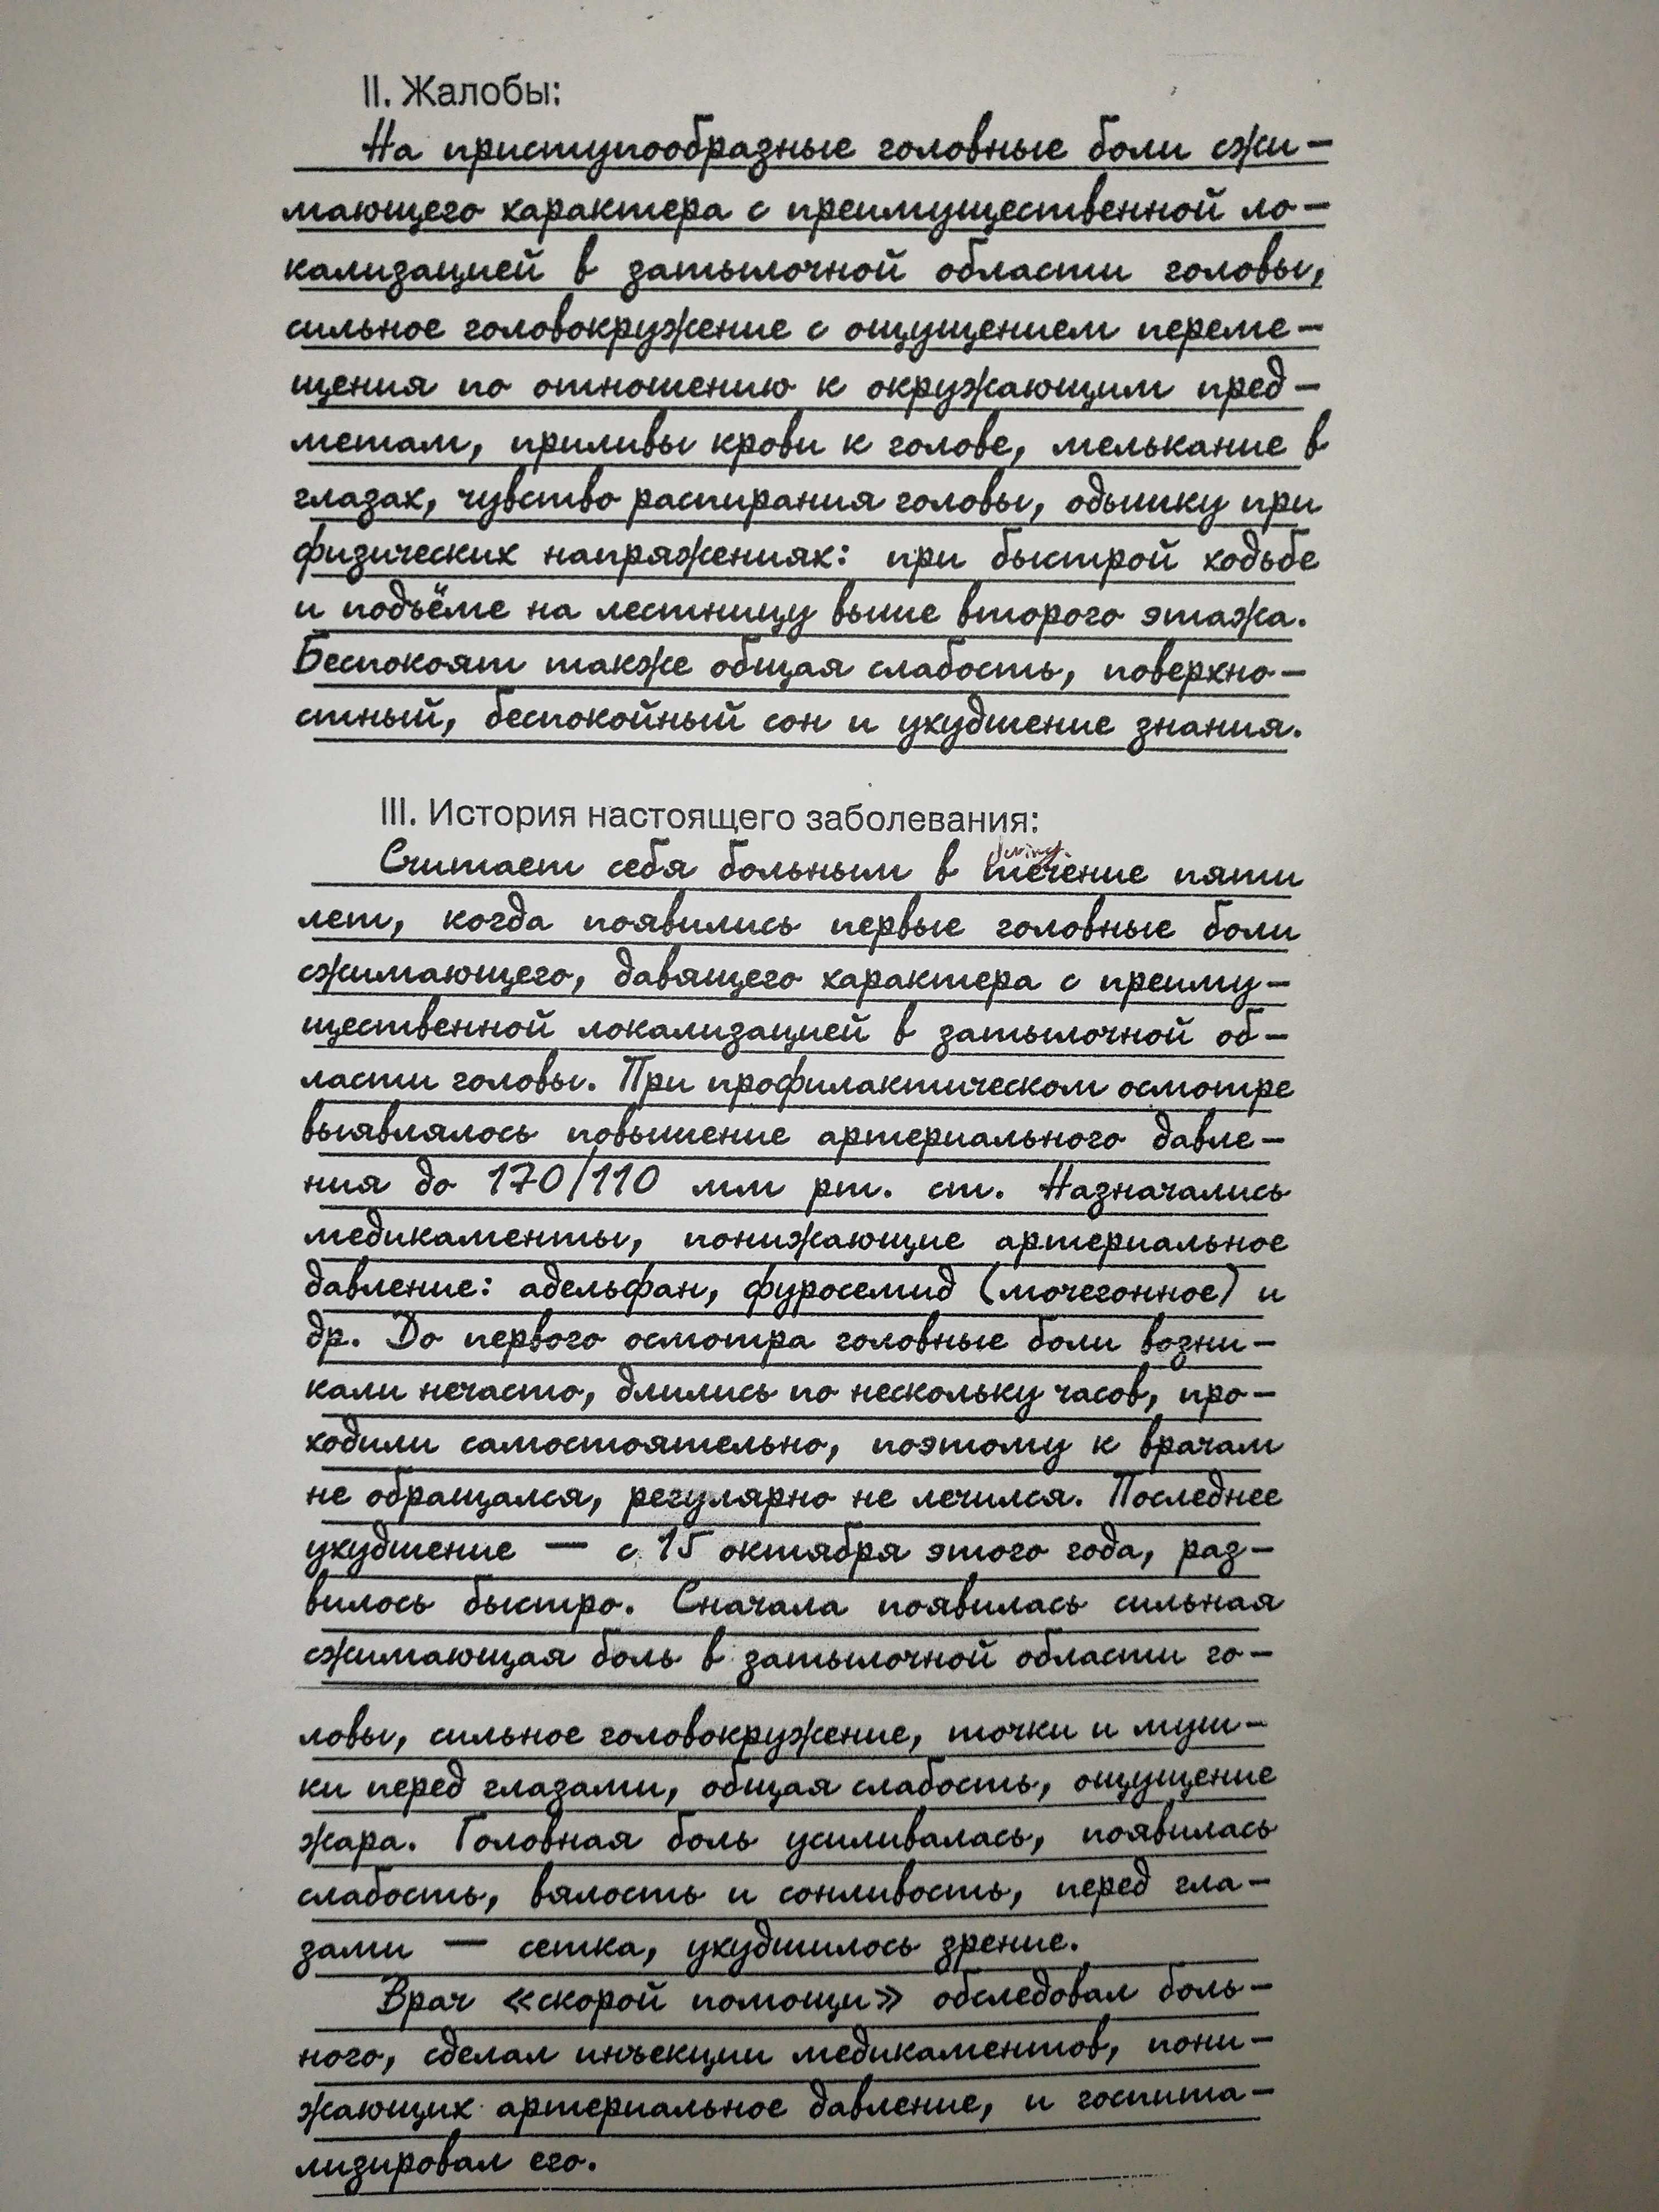 II. Жалобы:
На приступообразные головные боли сжи-
мающего характера с преимущественной ло-
кализацией в затылочной области головы,
сильное головокружение с ощущением переме-
щения по отношению к окружающим пред-
метам, приливы крови к голове, мелькание в
глазах, чувство распирания головы, одышку при
физических напряжениях: при быстрой ходьбе
и подъёме на лестницу выше второго этажа.
Беспокоят также общая слабость, поверхно-
стный, беспокойный сон и ухудшение знания.
III. История настоящего заболевания:
during.
Считает себя больным в течение пяти
лет, когда появились первые головные боли
сжимающего, давящего характера с преиму-
щественной локализацией в затылочной об-
ласти головы. При профилактическом осмотре
выявлялось повышение артериального давле-
ния до 170/110 мм рт. ст. Назначались
медикаменты, понижающие артериальное
давление: адельфан, фуросемид (мочегонное) и
др. До первого осмотра головные боли возни-
кали нечасто, длились по нескольку часов, про-
ходили самостоятельно, поэтому к врачам
не обращался, регулярно не лечился. Последнее
ухудшение — с 15 октября этого года, раз-
вилось быстро. Сначала появилась сильная
сжимающая боль в затылочной области го-
ловы, сильное головокружение, точки и муш-
ки перед глазами, общая слабость, ощущение
жара. Головная боль усиливалась, появилась
слабость, вялость и сонливость, перед гла-
зами — сетка, ухудшилось зрение.
Врач «скорой помощи» обследовал боль-
ного, сделал инъекции медикаментов, пони-
жающих артериальное давление, и госпита-
лизировал его.